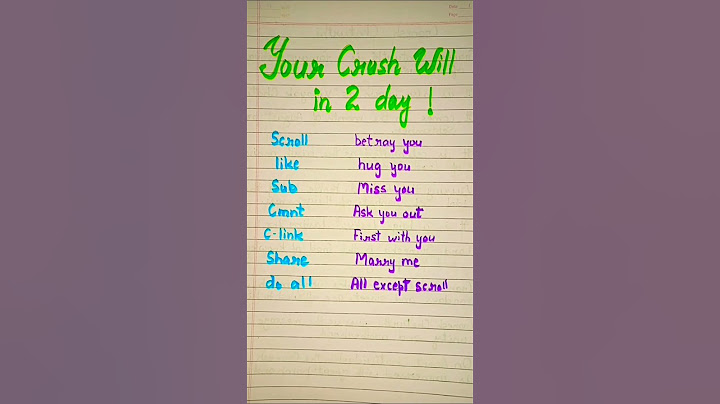 Your Crush Will
in 2 day !
Scroll betray you
like hug you
Sub Miss you
Cmnt Ask you out
C-link First with you
Share Marry me
do all All except scroll